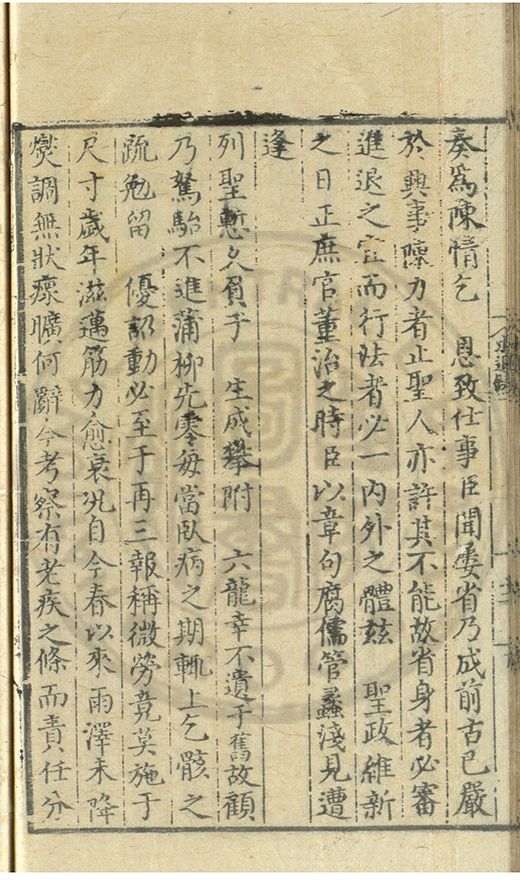 奏為陳情乞　恩致仕事臣聞婁省乃成前古已嚴
於興事陳力者止聖人亦許其不能故省身者必審
進退之宜而行法者必一內外之體茲　聖政維新
之日正庶官董治之時臣以章句腐儒管蠡淺見遭
逢
列聖慙久負于　生成攀附　六龍幸不遺于舊故顧
乃駑駘不進蒲柳先零每當臥病之期輒上乞骸之
疏勉留　優詔動必至于再三報稱微勞竟莫施于
尺寸歲年滋邁筋力愈衰況自今春以來雨澤未降
爕調無狀瘝曠何辭今考察有老疾之條而責任分